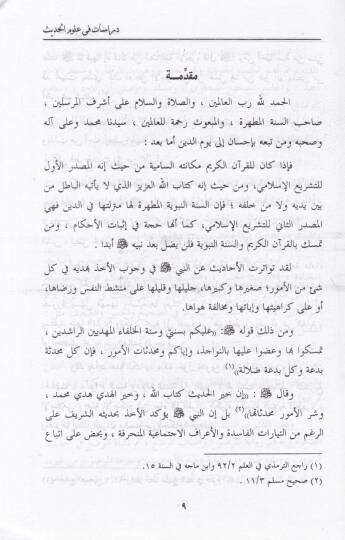 دراسات في علوم الحديث
مقدِّمــة
الحمد لله رب العالمين ، والصلاة والسلام على أشرف المرسلين ،
صاحب السنة المطهرة ، والمبعوث رحمة للعالمين ، سيدنا محمد وعلى آله
وصحبه ومن تبعه بإحسان إلى يوم الدين أما بعد :
فإذا كان للقرآن الكريم مكانته السامية من حيث إنه المصدر الأول
للتشريع الإسلامي، ومن حيث إنه كتاب الله العزيز الذي لا يأتيه الباطل من
بين يديه ولا من خلفه ؛ فإن السنة النبوية المطهرة لها منزلتها في الدين فهي
المصدر الثاني للتشريع الإسلامي، كما أنها حجة في إثبات الأحكام ، ومن
تمسك بالقرآن الكريم والسنة النبوية فلن يضل بعد نبيه ﷺ أبدا .
لقد تواترت الأحاديث عن النبي ﷺ في وجوب الأخذ بهديه في كل
شئ من الأمور؛ صغيرها وكبيرها، جليلها وقليلها على منشط النفس ورضاها،
أو على كراهيتها وإبائها ومخالفة هواها.
ومن ذلك قوله ﷺ: «عليكم بسنتي وسنة الخلفاء المهديين الراشدين ،
تمسكوا بها وعضوا عليها بالنواجذ، وإياكم ومحدثات الأمور ، فإن كل محدثة
بدعة وكل بدعة ضلالة»(١)
وقال ﷺ : «إن خير الحديث كتاب الله ، وخير الهدي هدي محمد ،
وشر الأمور محدثاتها»(٢) بل إن النبي ﷺ يؤكد الأخذ بحديثه الشريف على
الرغم من التيارات الفاسدة والأعراف الاجتماعية المنحرفة ، ويحض على اتباع
(١) راجع الترمذي في العلم ٩٢/٢ وابن ماجه في السنة ١٥.
(٢) صحيح مسلم ١١/٣ .
٩